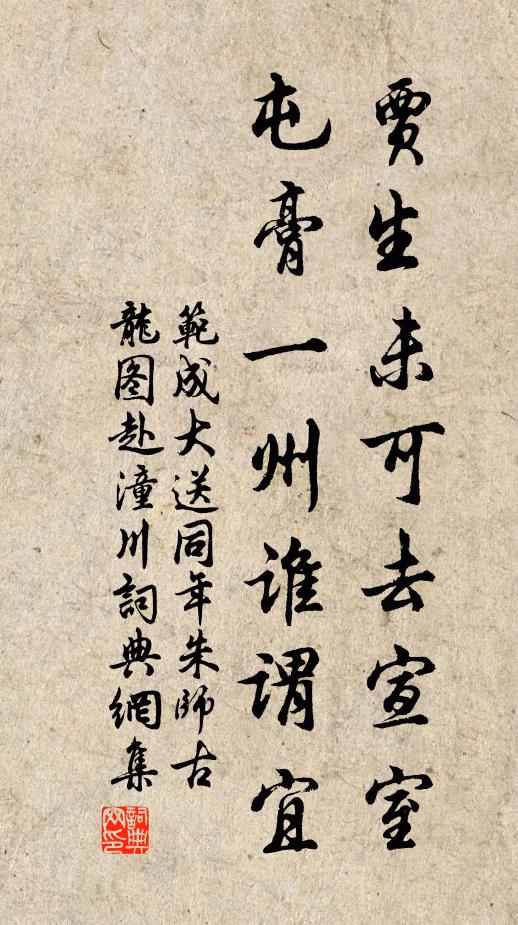 賈生未可去宣室
屯膏一州誰謂宜
範成大送同年朱師古
龍图赴潼川詞典網集
詞典
网印